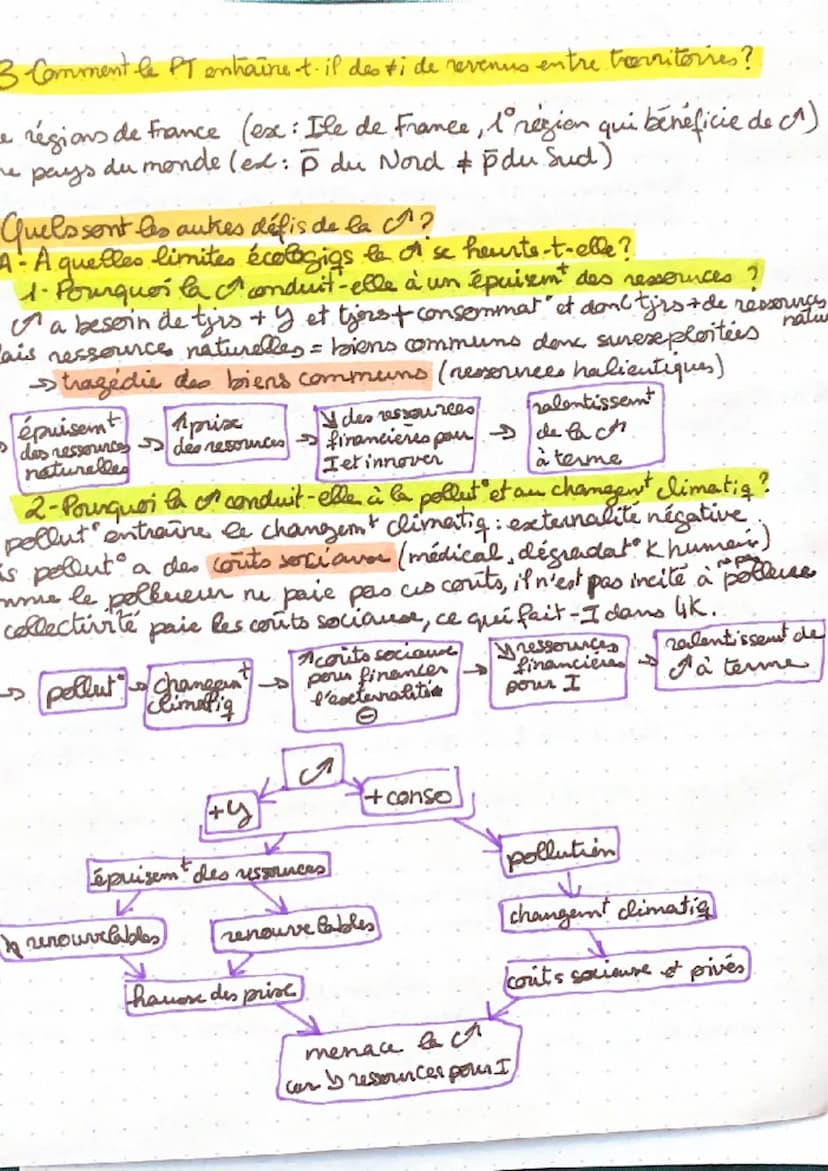 3-Comment le PT entraîne-t-il des ≠i de revenus entre territoires?
e régions de France (ex: Ile de France, 1° région qui bénéficie de C↗)
pays du monde (ex: p̄ du Nord ≠ p̄ du Sud)
Quels sont les autres défis de la C↗?
A- A quelles limites écologiqs la C↗ se heurte-t-elle?
1- Pourquoi la C↗ conduit-elle à un épuisemt des ressources ?
C↗ a besoin de tjrs + Y et tjrs + consommat° et donc tjrs + de ressources natu
ais ressources naturelles = biens communs donc surexploitées
→ tragédie des biens communs (ressources halieutiques)
épuisemt des ressources naturelles → ↑ prix des ressources → ↘ des ressources financières pour I et innover → ralentissemt de la C↗ à terme
2-Pourquoi la C↗ conduit-elle à la pollut° et au changemt climatiq?
pollut° entraîne le changemt climatiq: externalité négative
is pollut° a des coûts sociaux (médical, dégradat° K humain)
mme le pollueur ne paie pas ces coûts, il n'est pas incité à ne pas polluer
collectivité paie les coûts sociaux, ce qui fait -I dans 4K.
→ pollut° → changemt climatiq → ↗ coûts sociaux pour financer l'externalité ⊖ → ↘ ressources financières pour I → ralentissemt de C↗ à terme
C↗
+Y
+ conso
épuisemt des ressources
pollution
renouvelables
renouvelables
changemt climatiq
hausse des prix
coûts sociaux et privés
menace la C↗
car ↘ ressources pour I